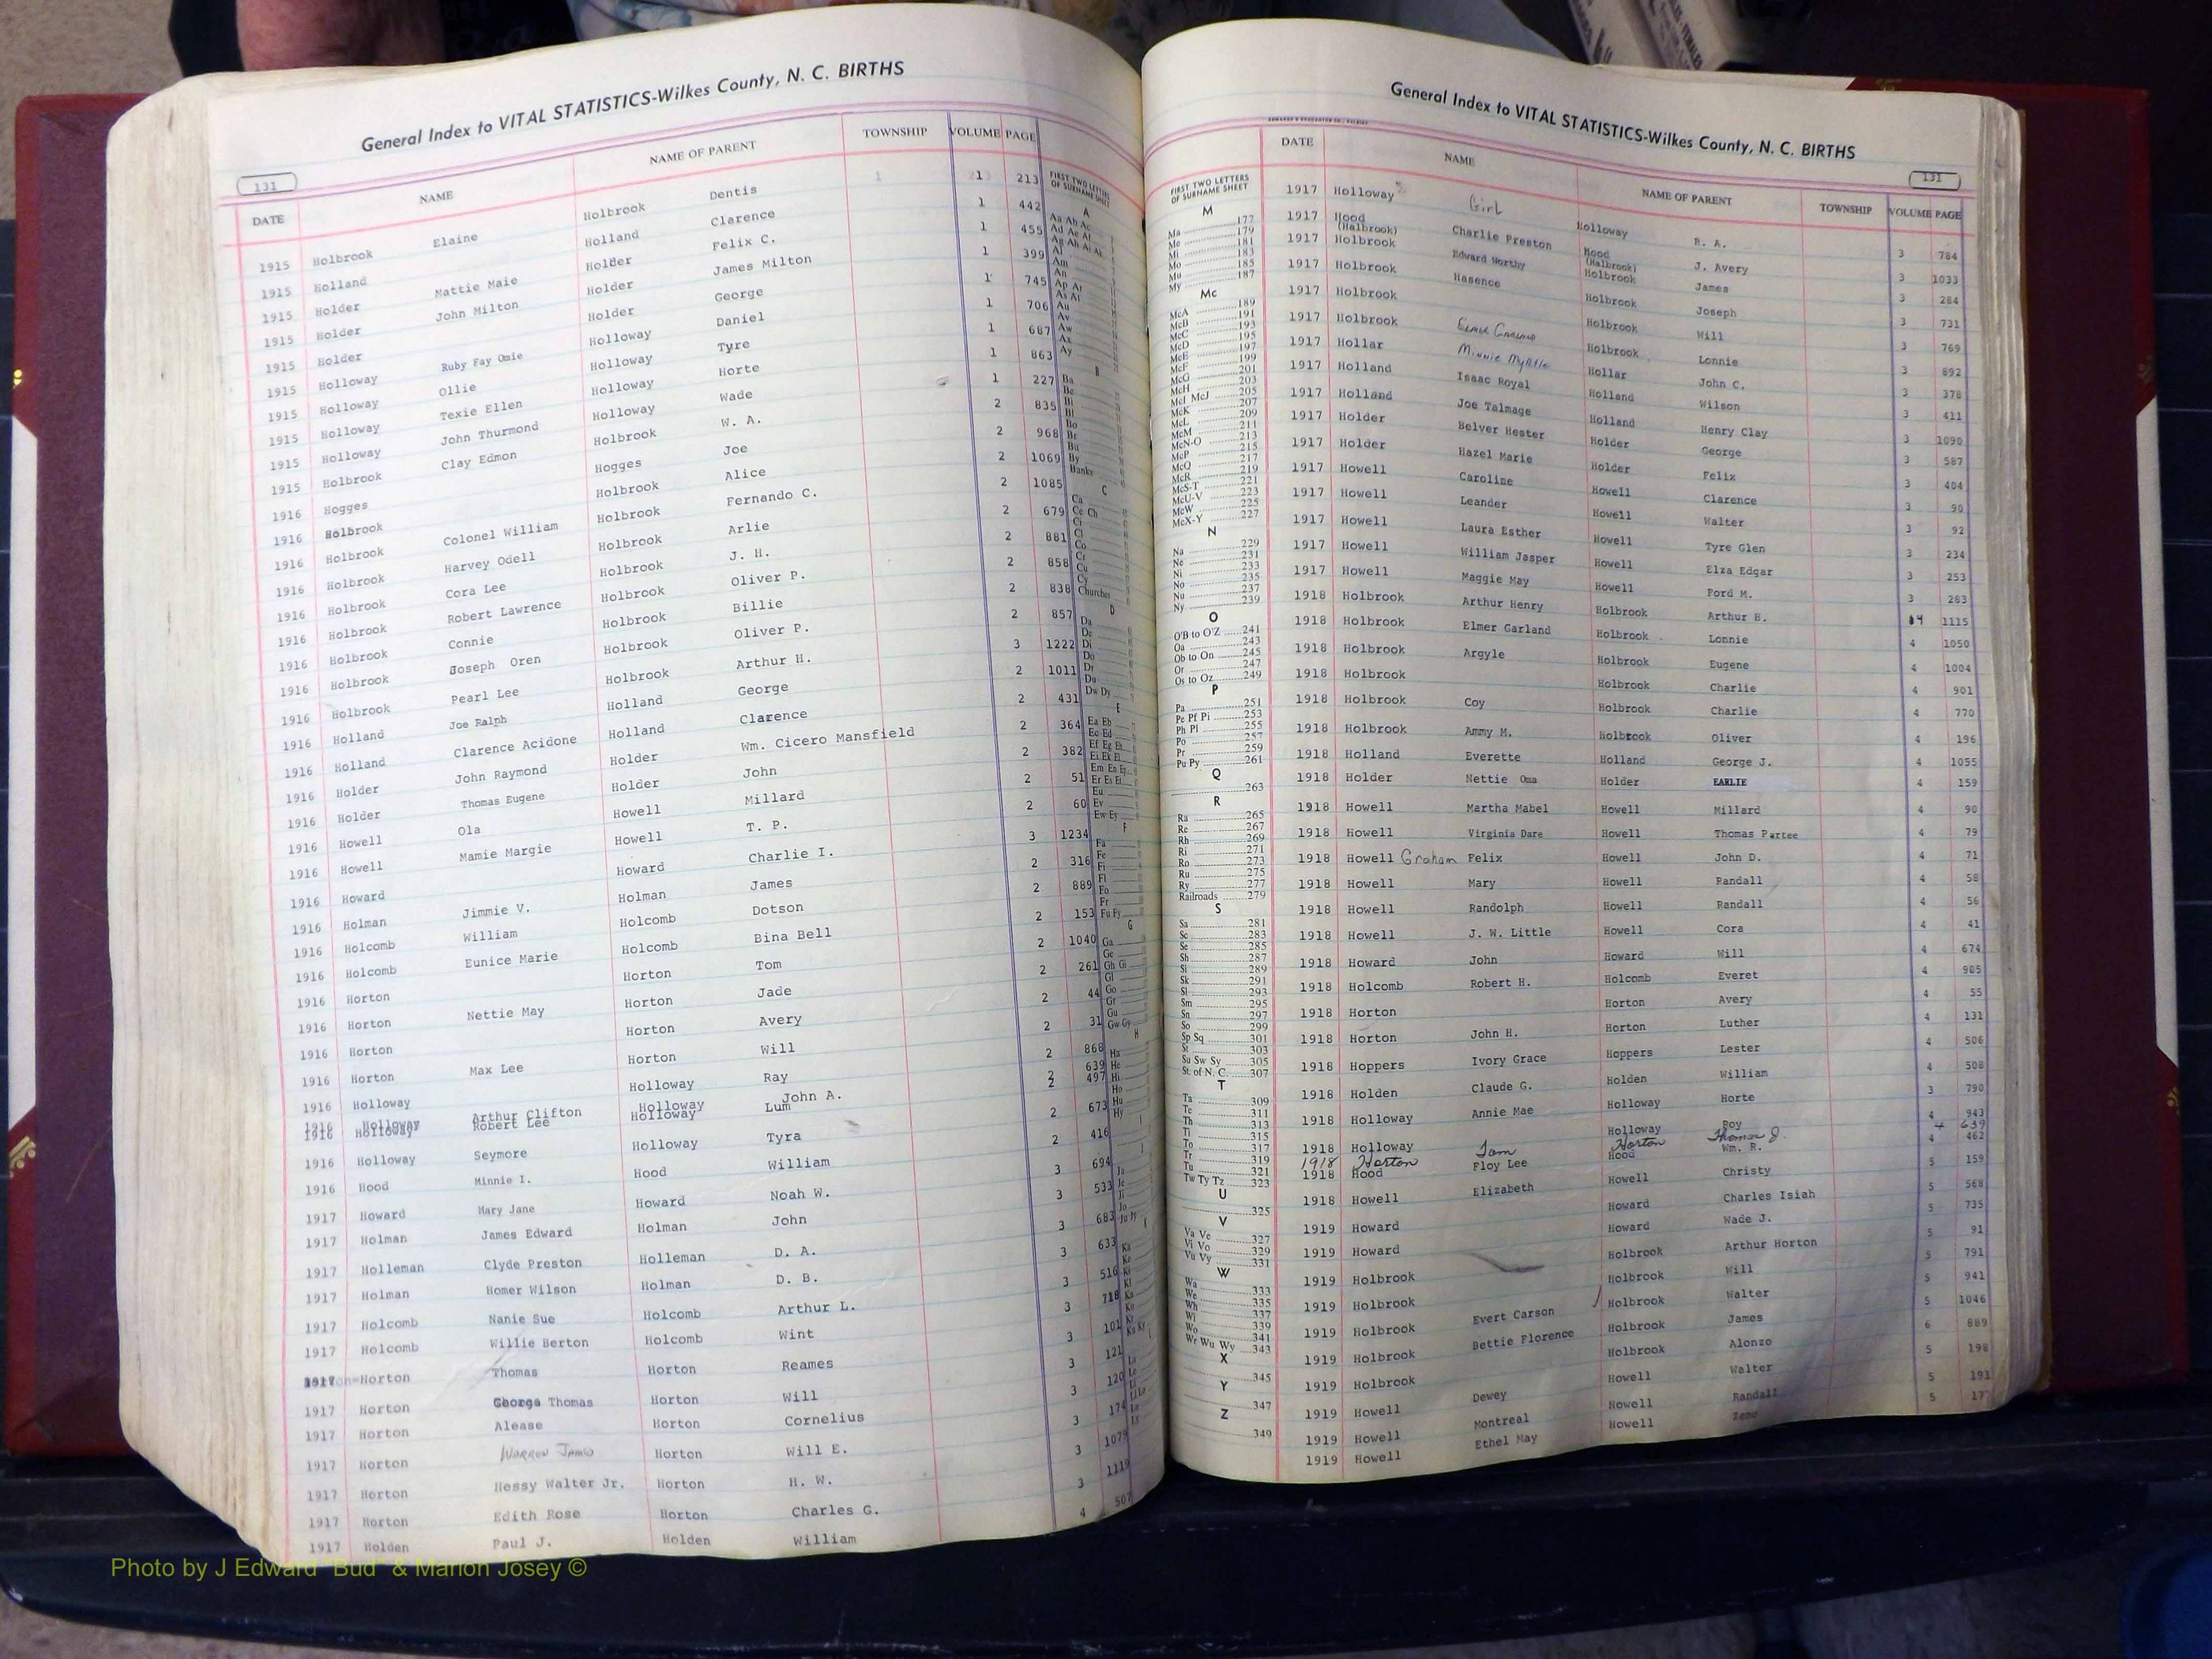 General Index to VITAL STATISTICS-Wilkes County, N. C. BIRTHS
131
DATE NAME NAME OF PARENT TOWNSHIP VOLUME PAGE
1915 Holbrook Elaine Holbrook Dentis 1 213
1915 Holland Holland Clarence 1 442
1915 Holder Mattie Maie Holder Felix C. 1 455
1915 Holder John Milton Holder James Milton 1 399
1915 Holder Holder George 1 745
1915 Holloway Ruby Fay Omie Holloway Daniel 1 706
1915 Holloway Ollie Holloway Tyre 1 687
1915 Holloway Texie Ellen Holloway Horte 1 863
1915 Holloway John Thurmond Holloway Wade 1 227
1915 Holbrook Clay Edmon Holbrook W. A. 2 835
1916 Hogges Hogges Joe 2 968
1916 Holbrook Holbrook Alice 2 1069
1916 Holbrook Colonel William Holbrook Fernando C. 2 1085
1916 Holbrook Harvey Odell Holbrook Arlie 2 679
1916 Holbrook Cora Lee Holbrook J. H. 2 881
1916 Holbrook Robert Lawrence Holbrook Oliver P. 2 858
1916 Holbrook Connie Holbrook Billie 2 838
1916 Holbrook Joseph Oren Holbrook Oliver P. 2 857
1916 Holbrook Pearl Lee Holbrook Arthur H. 3 1222
1916 Holland Joe Ralph Holland George 2 1011
1916 Holland Clarence Acidone Holland Clarence 2 431
1916 Holder John Raymond Holder Wm. Cicero Mansfield 2 364
1916 Holder Thomas Eugene Holder John 2 382
1916 Howell Ola Howell Millard 2 51
1916 Howell Mamie Margie Howell T. P. 2 60
1916 Howard Howard Charlie I. 3 1234
1916 Holman Jimmie V. Holman James 2 316
1916 Holcomb William Holcomb Dotson 2 889
1916 Holcomb Eunice Marie Holcomb Bina Bell 2 153
1916 Horton Horton Tom 2 1040
1916 Horton Nettie May Horton Jade 2 261
1916 Horton Horton Avery 2 44
1916 Horton Max Lee Horton Will 2 31
1916 Holloway Holloway Ray 2 868
1916 Holloway Arthur Clifton Holloway John A. 2 639
1916 Holloway Robert Lee Holloway Lum 2 497
1916 Holloway Seymore Holloway Tyra 2 673
1916 Hood Minnie I. Hood William 2 416
1917 Howard Mary Jane Howard Noah W. 3 694
1917 Holman James Edward Holman John 3 533
1917 Holleman Clyde Preston Holleman D. A. 3 683
1917 Holman Homer Wilson Holman D. B. 3 633
1917 Holcomb Nanie Sue Holcomb Arthur L. 3 516
1917 Holcomb Willie Berton Holcomb Wint 3 718
1917 Horton Thomas Horton Reames 3 101
1917 Horton George Thomas Horton Will 3 121
1917 Horton Alease Horton Cornelius 3 120
1917 Horton Warren James Horton Will E. 3 174
1917 Horton Hessy Walter Jr. Horton H. W. 3 1079
1917 Horton Edith Rose Horton Charles G. 3 1119
1917 Holden Paul J. Holden William 4 507
FIRST TWO LETTERS OF SURNAME SHEET
A
Aa Ab Ac
Ad Ae Af
Ag Ah Ai Ak
Al
Am
An
Ap Ar
As At
Au
Av
Aw
Ax
Ay
B
Ba
Be
Bi
Bl
Bo
Br
Bu
By
Banks
C
Ca
Ce Ch
Ci
Cl
Co
Cr
Cu
Cy
Churches
D
Da
De
Di
Do
Dr
Du
Dw Dy
E
Ea Eb
Ec Ed
Ef Eg Eh
Ei Ek El
Em En Ep
Er Es Et
Eu
Ev
Ew Ey
F
Fa
Fe
Fi
Fl
Fo
Fr
Fu Fy
G
Ga
Ge
Gh Gi
Gl
Go
Gr
Gu
Gw Gy
H
Ha
He
Hi
Ho
Hu
Hy
I
J
Ja
Je
Ji
Jo
Ju Jy
K
Ka
Ke
Ki
Kl
Kn
Ko
Kr
Ku Ky
L
La
Le
Li
Ll Lo
Lu
Ly
General Index to VITAL STATISTICS-Wilkes County, N. C. BIRTHS
131
FIRST TWO LETTERS OF SURNAME SHEET
M
Ma 177
Me 179
Mi 181
Mo 183
Mu 185
My 187
Mc
McA 189
McB 191
McC 193
McD 195
McE 197
McF 199
McG 201
McH 203
McI McJ 205
McK 207
McL 209
McM 211
McN-O 213
McP 215
McQ 217
McR 219
McS-T 221
McU-V 223
McW 225
McX-Y 227
N
Na 229
Ne 231
Ni 233
No 235
Nu 237
Ny 239
O
O'B to O'Z 241
Oa 243
Ob to On 245
Or 247
Os to Oz 249
P
Pa 251
Pe Pf Pi 253
Ph Pl 255
Po 257
Pr 259
Pu Py 261
Q
263
R
Ra 265
Re 267
Rh 269
Ri 271
Ro 273
Ru 275
Ry 277
Railroads 279
S
Sa 281
Sc 283
Se 285
Sh 287
Si 289
Sk 291
Sl 293
Sm 295
Sn 297
So 299
Sp Sq 301
St 303
Su Sw Sy 305
St. of N. C. 307
T
Ta 309
Te 311
Th 313
Ti 315
To 317
Tr 319
Tu 321
Tw Ty Tz 323
U
325
V
Va Ve 327
Vi Vo 329
Vu Vy 331
W
Wa 333
We 335
Wh 337
Wi 339
Wo 341
Wr Wu Wy 343
X
345
Y
347
Z
349
DATE NAME NAME OF PARENT TOWNSHIP VOLUME PAGE
1917 Holloway Girl Holloway R. A. 3 784
1917 Hood Charlie Preston Hood J. Avery 3 1033
(Halbrook) (Halbrook)
1917 Holbrook Edward Worthy Holbrook James 3 284
1917 Holbrook Hasence Holbrook Joseph 3 731
1917 Holbrook Holbrook Will 3 769
1917 Holbrook Holbrook Lonnie 3 892
1917 Hollar Minnie Myrtle Hollar John C. 3 378
1917 Holland Isaac Royal Holland Wilson 3 411
1917 Holland Joe Talmage Holland Henry Clay 3 1090
1917 Holder Belver Hester Holder George 3 587
1917 Holder Hazel Marie Holder Felix 3 404
1917 Howell Caroline Howell Clarence 3 90
1917 Howell Leander Howell Walter 3 92
1917 Howell Laura Esther Howell Tyre Glen 3 234
1917 Howell William Jasper Howell Elza Edgar 3 253
1917 Howell Maggie May Howell Ford M. 3 283
1918 Holbrook Arthur Henry Holbrook Arthur H. 4 1115
1918 Holbrook Elmer Garland Holbrook Lonnie 4 1050
1918 Holbrook Argyle Holbrook Eugene 4 1004
1918 Holbrook Holbrook Charlie 4 901
1918 Holbrook Coy Holbrook Charlie 4 770
1918 Holbrook Ammy M. Holbrook Oliver 4 196
1918 Holland Everette Holland George J. 4 1055
1918 Holder Nettie Oma Holder EARLIE 4 159
1918 Howell Martha Mabel Howell Millard 4 90
1918 Howell Virginia Dare Howell Thomas Partee 4 79
1918 Howell Graham Felix Howell John D. 4 71
1918 Howell Mary Howell Randall 4 58
1918 Howell Randolph Howell Randall 4 56
1918 Howell J. W. Little Howell Cora 4 41
1918 Howard John Howard Will 4 674
1918 Holcomb Robert H. Holcomb Everet 4 905
1918 Horton Horton Avery 4 55
1918 Horton John H. Horton Luther 4 131
1918 Hoppers Ivory Grace Hoppers Lester 4 506
1918 Holden Claude G. Holden William 4 508
1918 Holloway Annie Mae Holloway Horte 3 790
1918 Holloway Holloway Roy 4 943
1918 Horton Tom Horton Thomas J. 4 639
1918 Hood Floy Lee Hood Wm. R. 4 462
1918 Howell Elizabeth Howell Christy 5 159
1919 Howard Howard Charles Isiah 5 568
1919 Howard Howard Wade J. 5 735
1919 Holbrook Holbrook Arthur Horton 5 91
1919 Holbrook Holbrook Will 5 791
1919 Holbrook Evert Carson Holbrook Walter 5 941
1919 Holbrook Bettie Florence Holbrook James 5 1046
1919 Holbrook Holbrook Alonzo 6 889
1919 Howell Dewey Howell Walter 5 198
1919 Howell Montreal Howell Randall 5 191
1919 Howell Ethel May Howell Zeno 5
Photo by J Edward "Bud" & Marion Josey ©